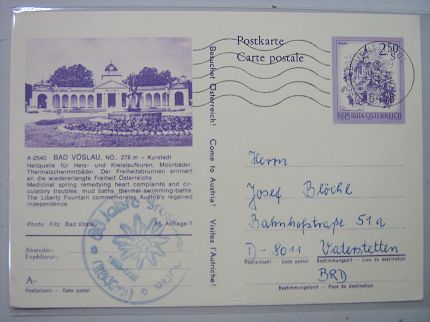 Postkarte
Carte postale
2.50
S
REPUBLIK ÖSTERREICH
A-2540 BAD VÖSLAU, NÖ., 276 m – Kurstadt
Heilquelle für Herz- und Kreislaufkuren, Moorbäder,
Thermalschwimmbäder. Der Freiheitsbrunnen erinnert
an die wiedererlangte Freiheit Österreichs
Medicinal spring remedying heart complaints and cir-
culatory troubles, mud baths, thermal-swimming-baths.
The Liberty Fountain commemorates Austria's regained
independence
Photo: Fitz, Bad Vöslau
Absender:
Expéditeur:
A-
Postleitzahl - Code postal
Besuchet Österreich! Come to Austria! Visitez l'Autriche!
Herrn
Josef Blöchl
Bahnhofstraße 51a
D-8011 Vaterstetten
Postleitzahl Code postal Bestimmungsort - Lieu de destination
BRD
Bestimmungsland - Pays de destination